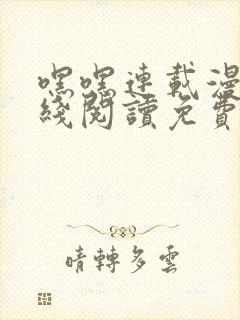 嘿嘿連載漫
綫閱讀免費
晴轉多雲